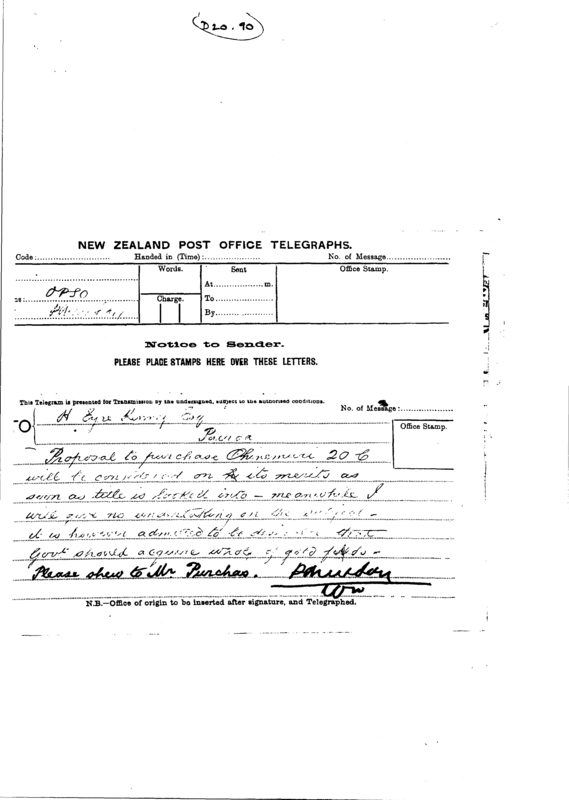 D20.90
NEW ZEALAND POST OFFICE TELEGRAPHS.
Code: Handed in (Time): No. of Message
Words. Sent Office Stamp.
At m.
OPSO Charge. To
By
Notice to Sender.
PLEASE PLACE STAMPS HERE OVER THESE LETTERS.
This Telegram is presented for Transmission by the undersigned, subject to the authorised conditions. No. of Message:
H Eyre Kenny Esq Office Stamp.
TO
Paeroa
Proposal to purchase Ohinemuri 20 C
will be considered on its merits as
soon as title is looked into – meanwhile I
will give no undertaking on the subject –
it is however admitted to be desirable that
Govt should acquire whole of gold fields –
Please shew to Mr Purchas.
N.B.—Office of origin to be inserted after signature, and Telegraphed.